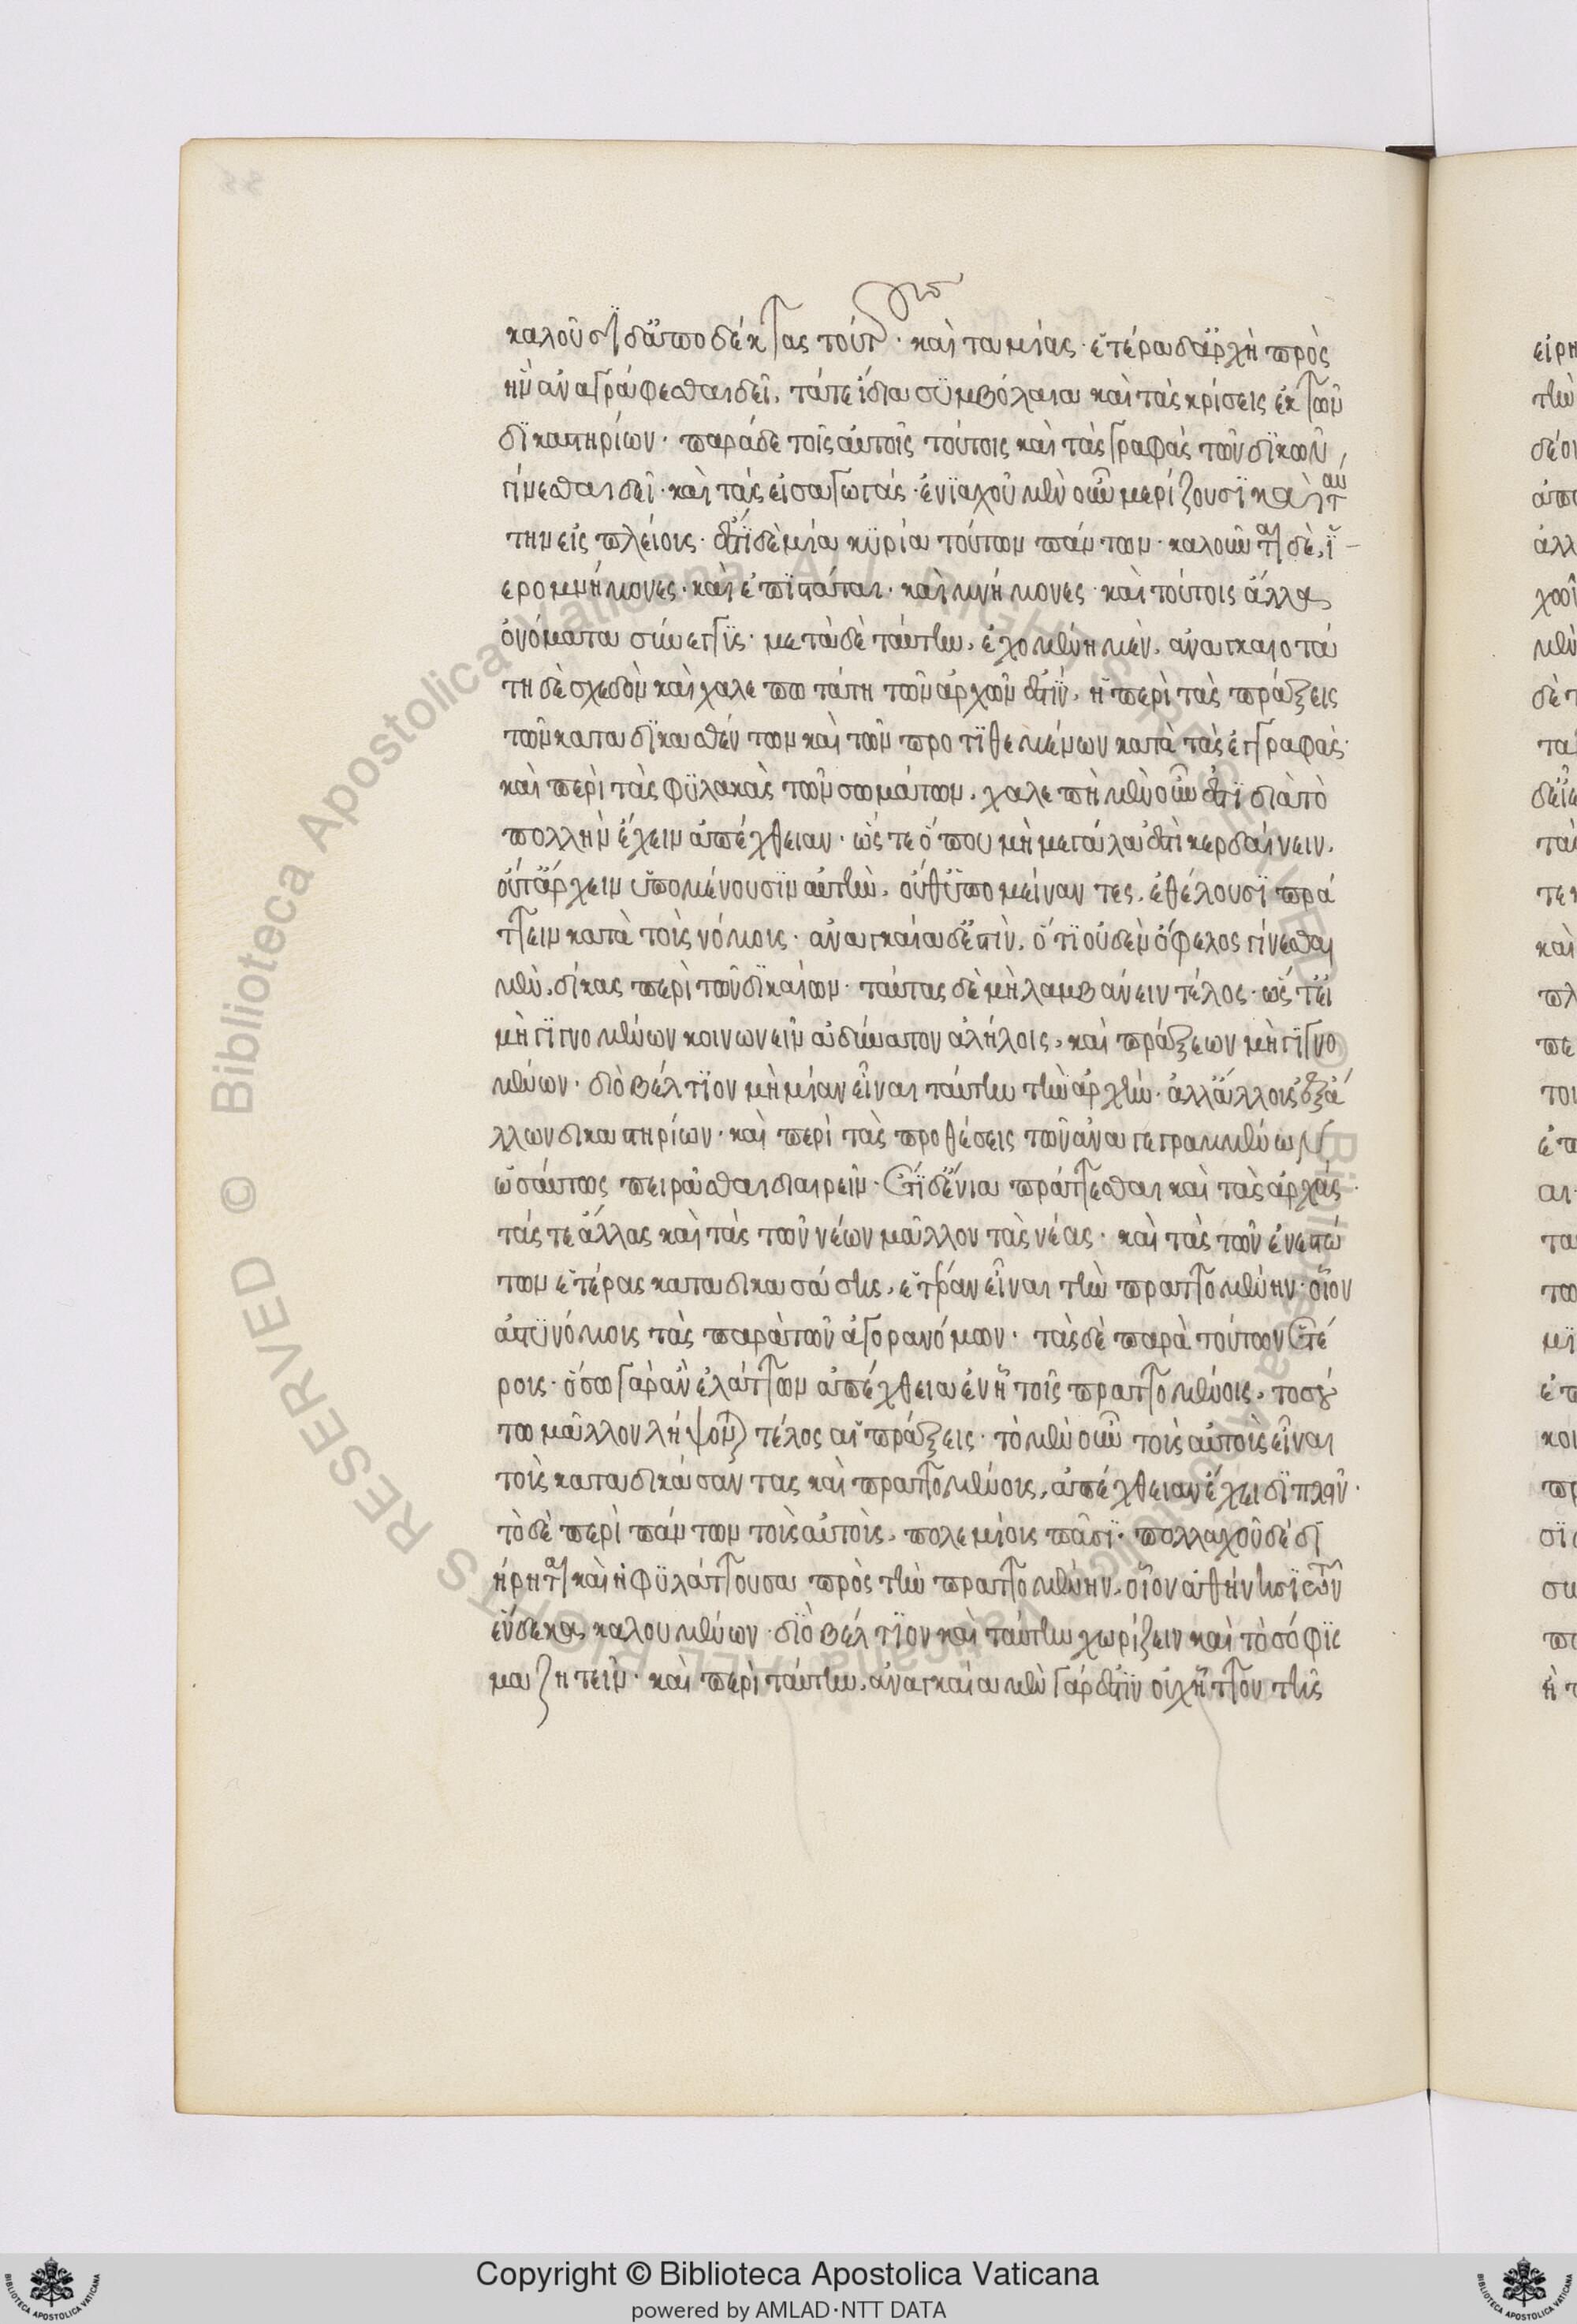 καλοῦσι δ' ἀποδέκτας τούτους· καὶ ταμίας· ἑτέρα δ' ἀρχὴ πρὸς
ἣν ἀναγράφεσθαι δεῖ, τά τε ἴδια συμβόλαια καὶ τὰς κρίσεις ἐκ τῶν
δικαστηρίων· παρὰ δὲ τοῖς αὐτοῖς τούτοις καὶ τὰς γραφὰς τῶν δικῶν
γίνεσθαι δεῖ· καὶ τὰς εἰσαγωγάς· ἐνιαχοῦ μὲν οὖν μερίζουσι καὶ ταύ
την εἰς πλείους· ἔστι δὲ μία κυρία τούτων πάντων· καλοῦνται δὲ, ἱ-
ερομνήμονες· καὶ ἐπιστάται· καὶ μνήμονες· καὶ τούτοις ἄλλα
ὀνόματα σύνεγγυς· μετὰ δὲ ταύτην, ἐχομένη μὲν, ἀναγκαιοτά
τη δὲ σχεδὸν καὶ χαλεπωτάτη τῶν ἀρχῶν ἐστίν, ἡ περὶ τὰς πράξεις
τῶν καταδικασθέντων καὶ τῶν προτιθεμένων κατὰ τὰς ἐγγραφάς·
καὶ περὶ τὰς φυλακὰς τῶν σωμάτων, χαλεπὴ μὲν οὖν ἐστι διὰ τὸ
πολλὴν ἔχειν ἀπέχθειαν· ὥστε ὅπου μὴ μεγάλα ἐστὶ κερδαίνειν,
οὔτ' ἄρχειν ὑπομένουσιν αὐτὴν, οὔθ' ὑπομείναντες, ἐθέλουσι πρά
ττειν κατὰ τοὺς νόμους· ἀναγκαία δ' ἐστὶν, ὅτι οὐδὲν ὄφελος γίνεσθαι
μὲν, δίκας περὶ τῶν δικαίων· ταύτας δὲ μὴ λαμβάνειν τέλος· ὥστ' εἰ
μὴ γιγνομένων κοινωνεῖν ἀδύνατον ἀλήλοις, καὶ πράξεων μὴ γιγνο
μένων· διὸ βέλτιον μὴ μίαν εἶναι ταύτην τὴν ἀρχὴν· ἀλλ' ἄλλους ἐξ ἄ
λλων δικαστηρίων· καὶ περὶ τὰς προθέσεις τῶν ἀναγεγραμμένων
ὡσαύτως πειρᾶσθαι διαιρεῖν· ἔτι δ' ἔνια πράττεσθαι καὶ τὰς ἀρχάς·
τάς τε ἄλλας καὶ τὰς τῶν νέων μᾶλλον τὰς νέας· καὶ τὰς τῶν ἐνεστώ
των ἑτέρας καταδικασάσης, ἑτέραν εἶναι τὴν πραττομένην· οἷον
ἀστυνόμους τὰς παρὰ τῶν ἀγορανόμων· τὰς δὲ παρὰ τούτων ἑτέ
ρους· ὅσῳ γὰρ ἂν ἐλάττων ἀπέχθεια ἐνῇ τοῖς πραττομένοις, τοσού
τῳ μᾶλλον λήψονται τέλος αἱ πράξεις· τὸ μὲν οὖν τοὺς αὐτοὺς εἶναι
τοὺς καταδικάσαντας καὶ πραττομένους, ἀπέχθειαν ἔχει διπλῆν·
τὸ δὲ περὶ πάντων τοὺς αὐτοὺς, πολεμίους πᾶσι· πολλαχοῦ δὲ δι
ῄρηται καὶ ἡ φυλάττουσα πρὸς τὴν πραττομένην, οἷον ἀθήνησι τῶν
ἕνδεκα, καλουμένων· διὸ βέλτιον καὶ ταύτην χωρίζειν καὶ τὸ σόφισ
μα ζητεῖν· καὶ περὶ ταύτην, ἀναγκαία μὲν γάρ ἐστιν οὐχ ἧττον τῆς
Copyright © Biblioteca Apostolica Vaticana
powered by AMLAD·NTT DATA